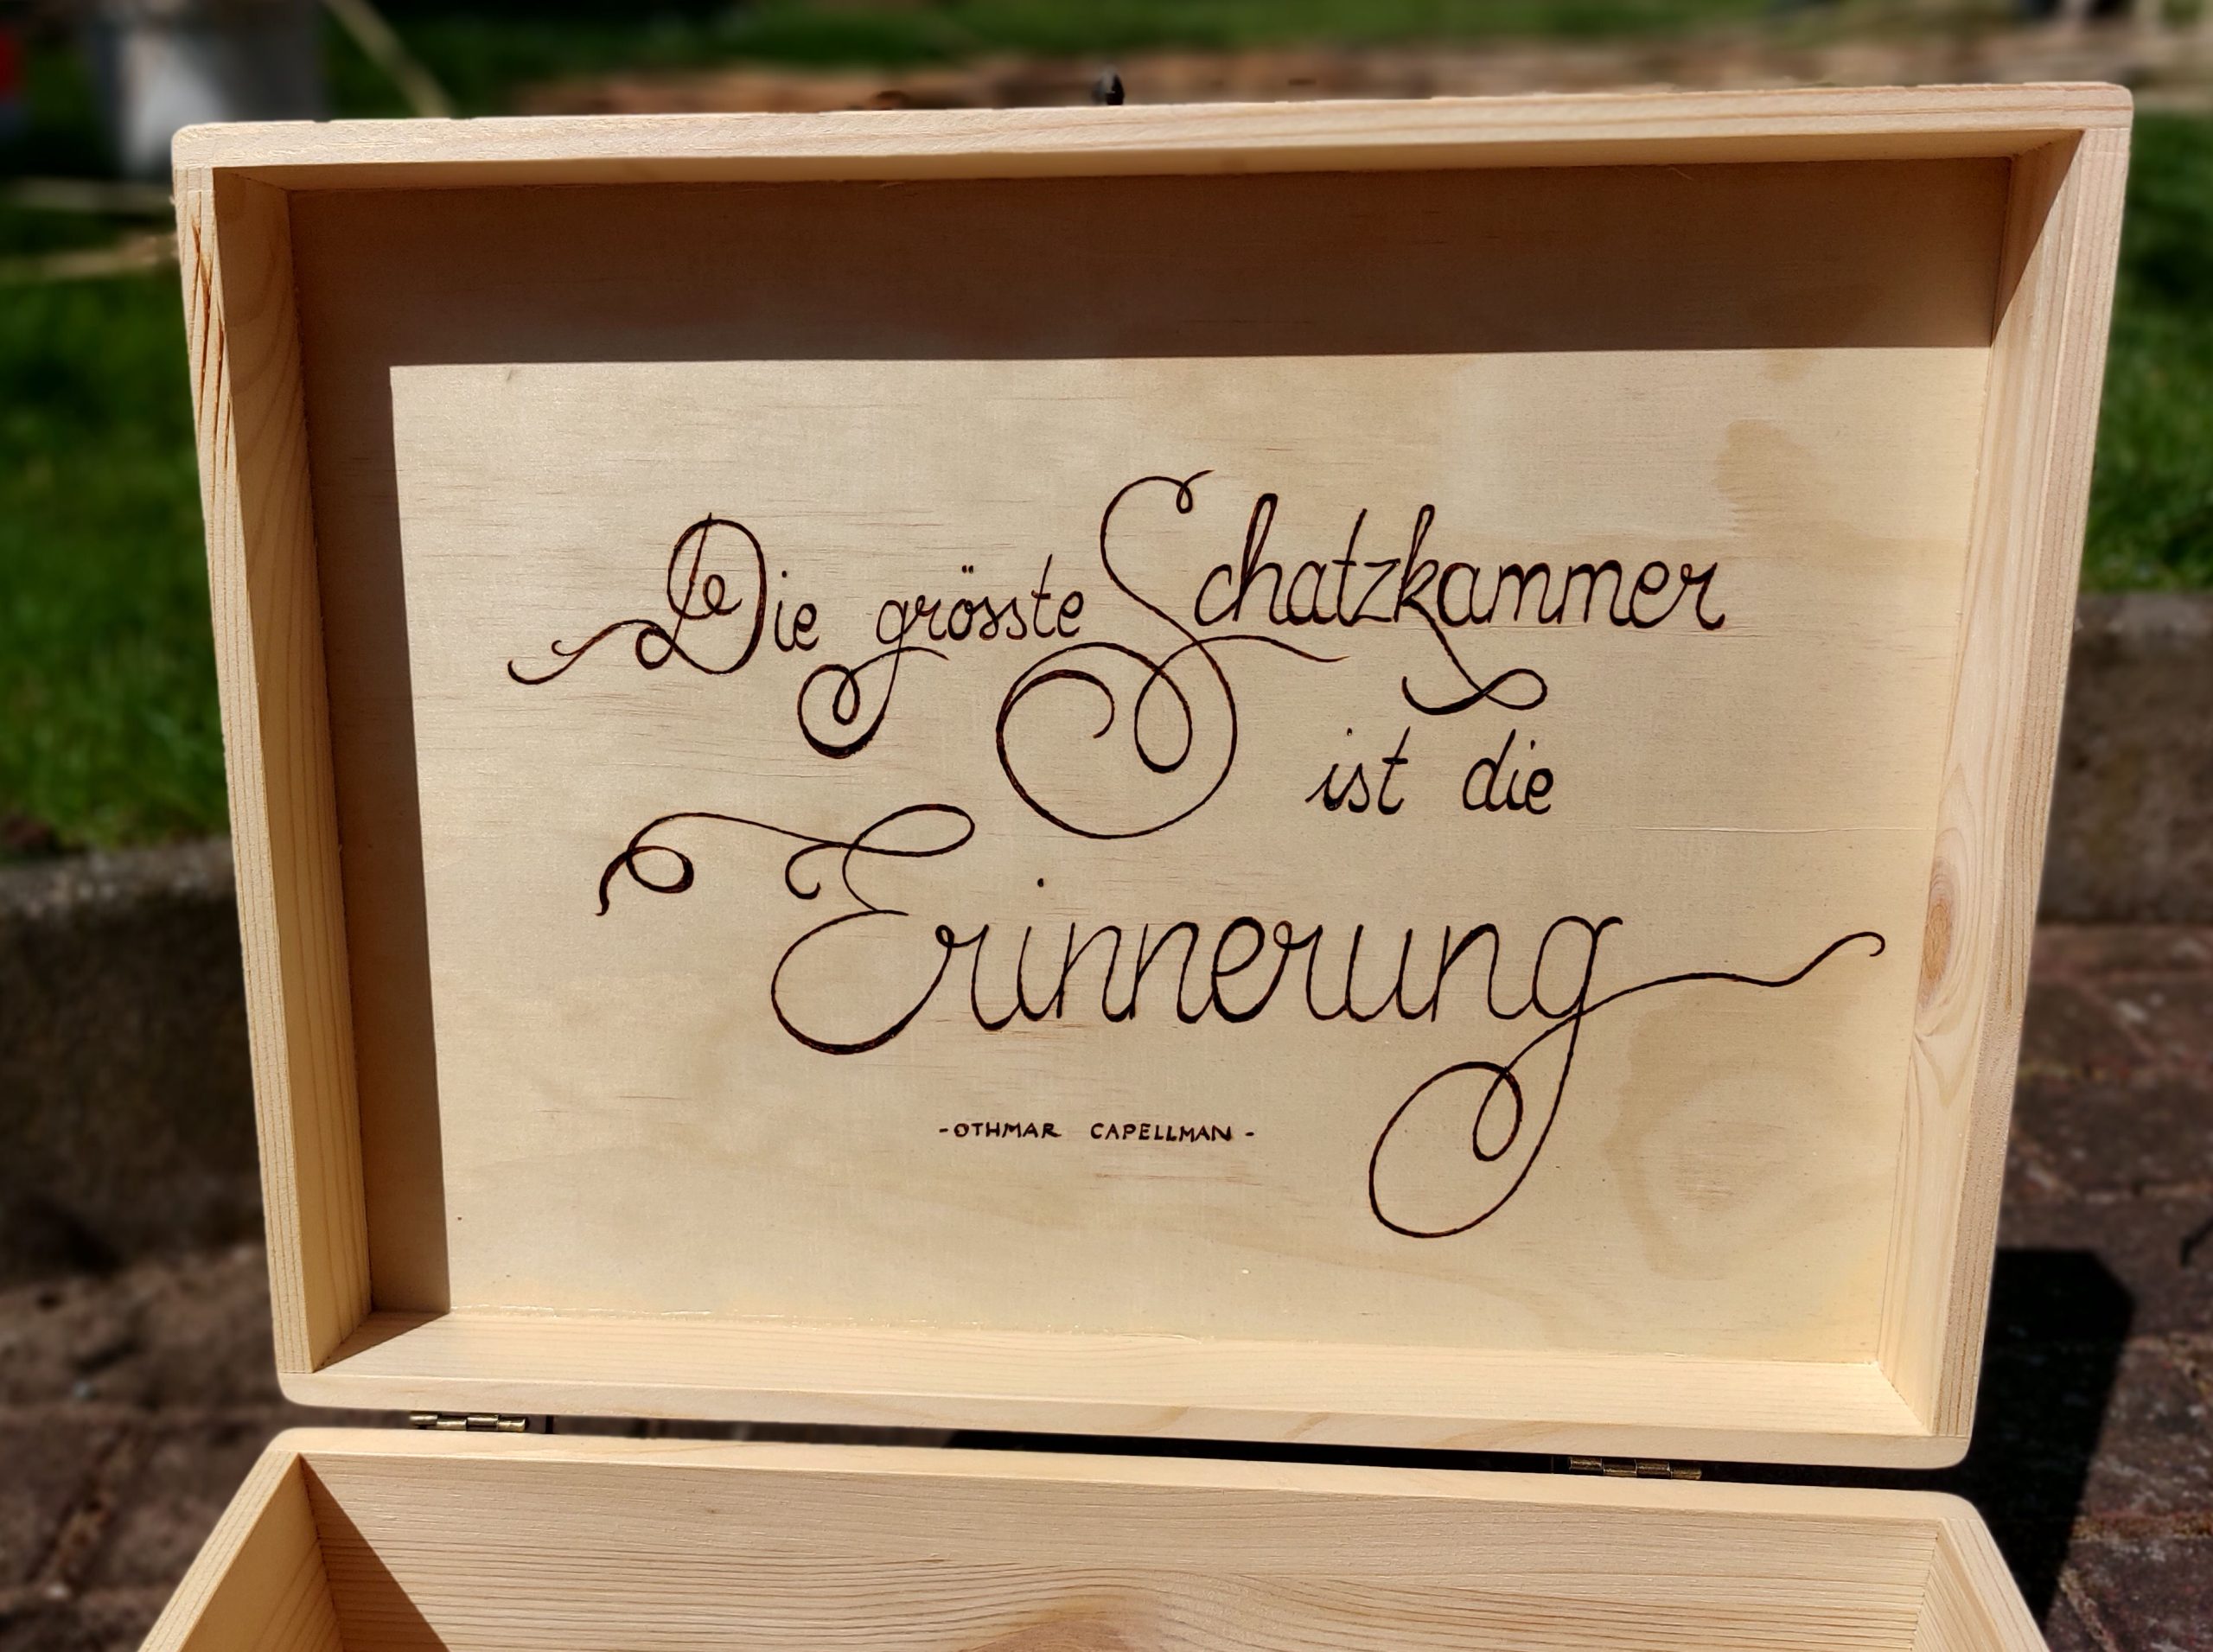 Die grösste Schatzkammer
ist die
Erinnerung
-OTHMAR CAPELLMAN-